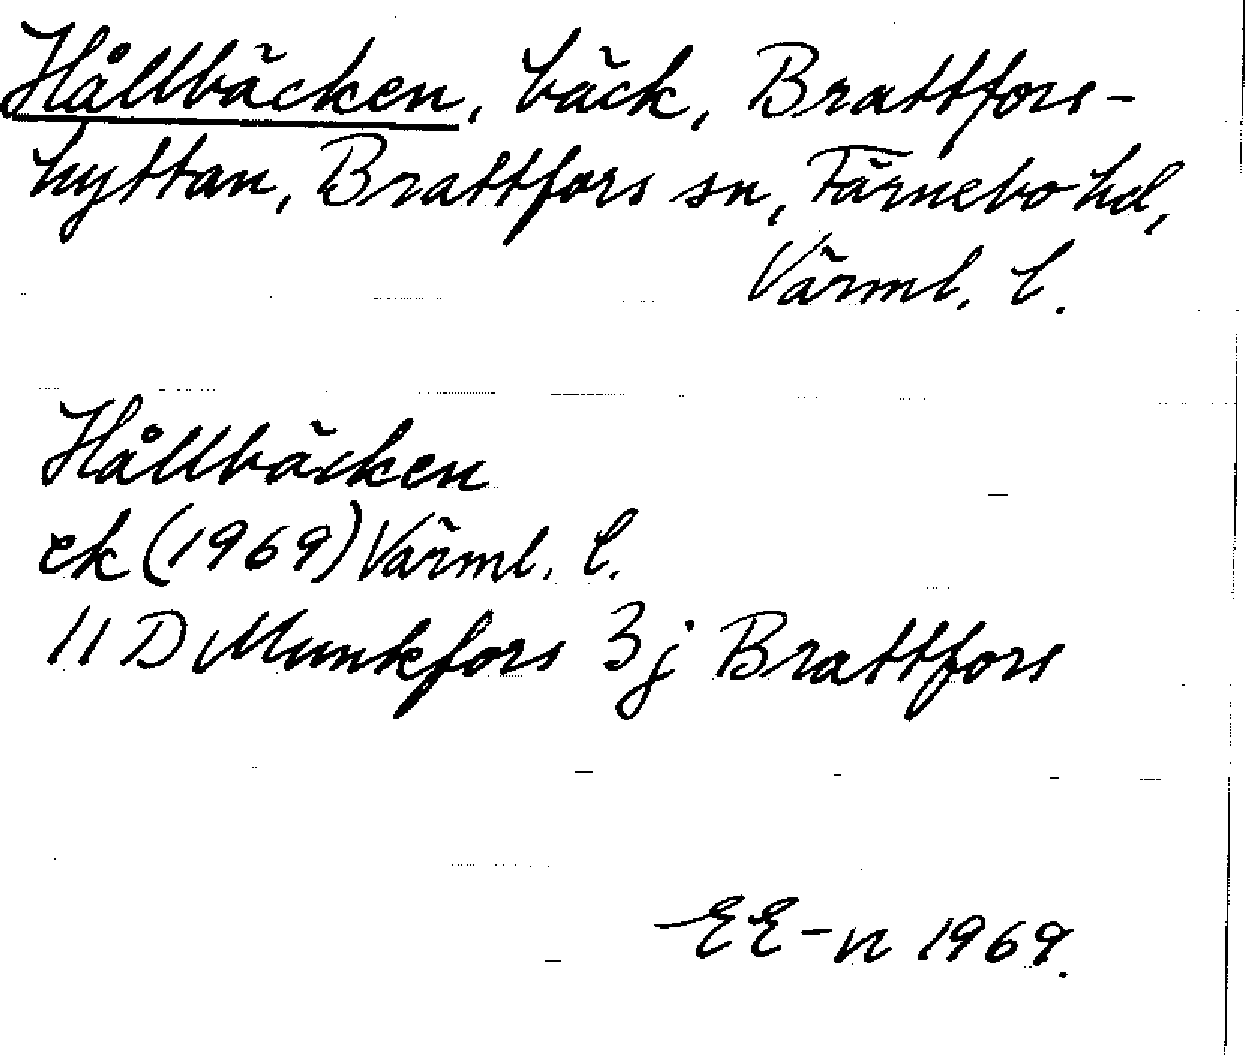 Hållbäcken, bäck, Brattfors-
hyttan, Brattfors sn, Färnebo hd,
Värml. l.
Hållbäcken
ek (1969) Värml. l.
11 D Munkfors 3j Brattfors
EE-n 1969.